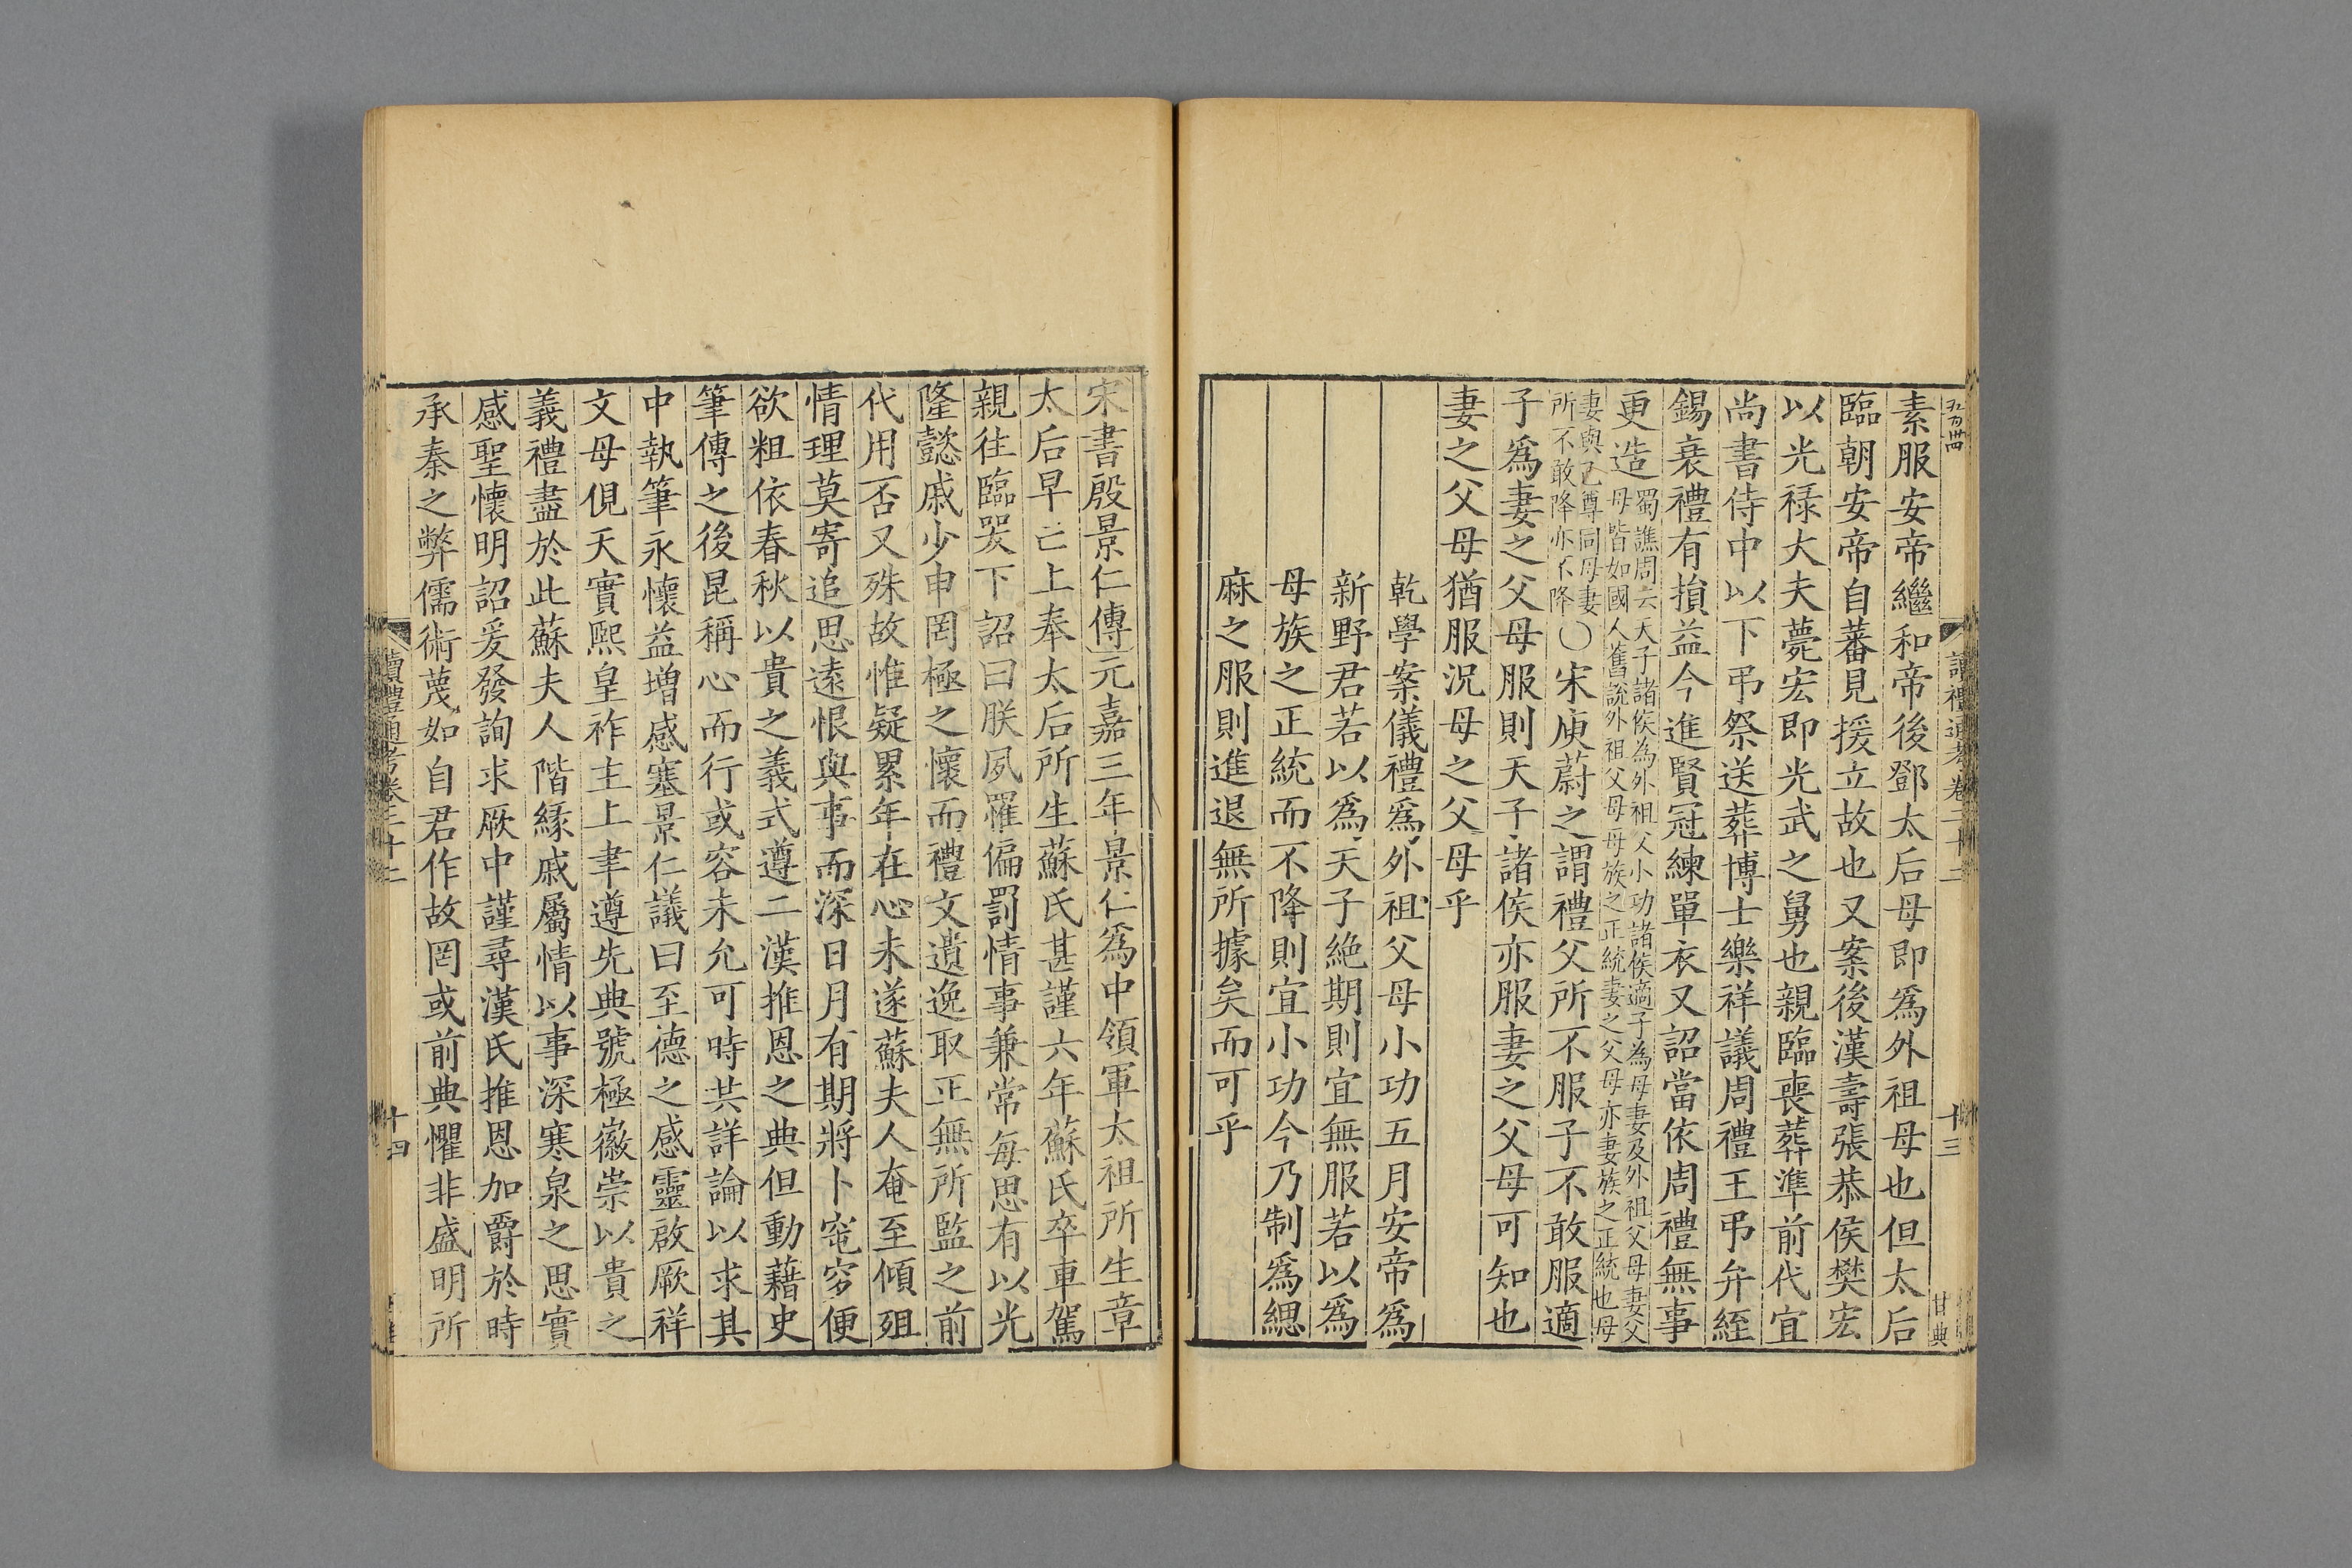 五百卌
讀禮通考卷二十二
十三
甘典
素服安帝繼和帝後鄧太后母即爲外祖母也但太后
臨朝安帝自蕃見援立故也又案後漢壽張恭侯樊宏
以光祿大夫薨宏即光武之舅也親臨喪葬準前代宜
尚書侍中以下弔祭送葬博士樂祥議周禮王弔弁絰
錫衰禮有損益今進賢冠練單衣又詔當依周禮無事
更造蜀譙周云天子諸侯為外祖父小功諸侯適子為母妻及外祖父母妻父
母皆如國人舊說外祖父母母族之正統妻之父母亦妻族之正統也母
妻與己尊同母妻
所不敢降亦不降〇宋庾蔚之謂禮父所不服子不敢服適
子爲妻之父母服則天子諸侯亦服妻之父母可知也
妻之父母猶服況母之父母乎
乾學案儀禮爲外祖父母小功五月安帝爲
新野君若以爲天子絶期則宜無服若以爲
母族之正統而不降則宜小功今乃制爲緦
麻之服則進退無所據矣而可乎
宋書殷景仁傳元嘉三年景仁爲中領軍太祖所生章
太后早亡上奉太后所生蘇氏甚謹六年蘇氏卒車駕
親往臨哭下詔曰朕夙罹偏罰情事兼常每思有以光
隆懿戚少申罔極之懷而禮文遺逸取正無所監之前
代用否又殊故惟疑累年在心未遂蘇夫人奄至傾殂
情理莫寄追思遠恨與事而深日月有期將卜窀穸便
欲粗依春秋以貴之義式遵二漢推恩之典但動藉史
筆傳之後昆稱心而行或容未允可時共詳論以求其
中執筆永懷益增感塞景仁議曰至德之感靈啟厥祥
文母俔天實熙皇祚主上聿遵先典號極徽崇以貴之
義禮盡於此蘇夫人階緣戚屬情以事深寒泉之思實
感聖懷明詔爰發詢求厥中謹尋漢氏推恩加爵於時
承秦之弊儒術蔑如自君作故罔或前典懼非盛明所
讀禮通考卷二十二
十四